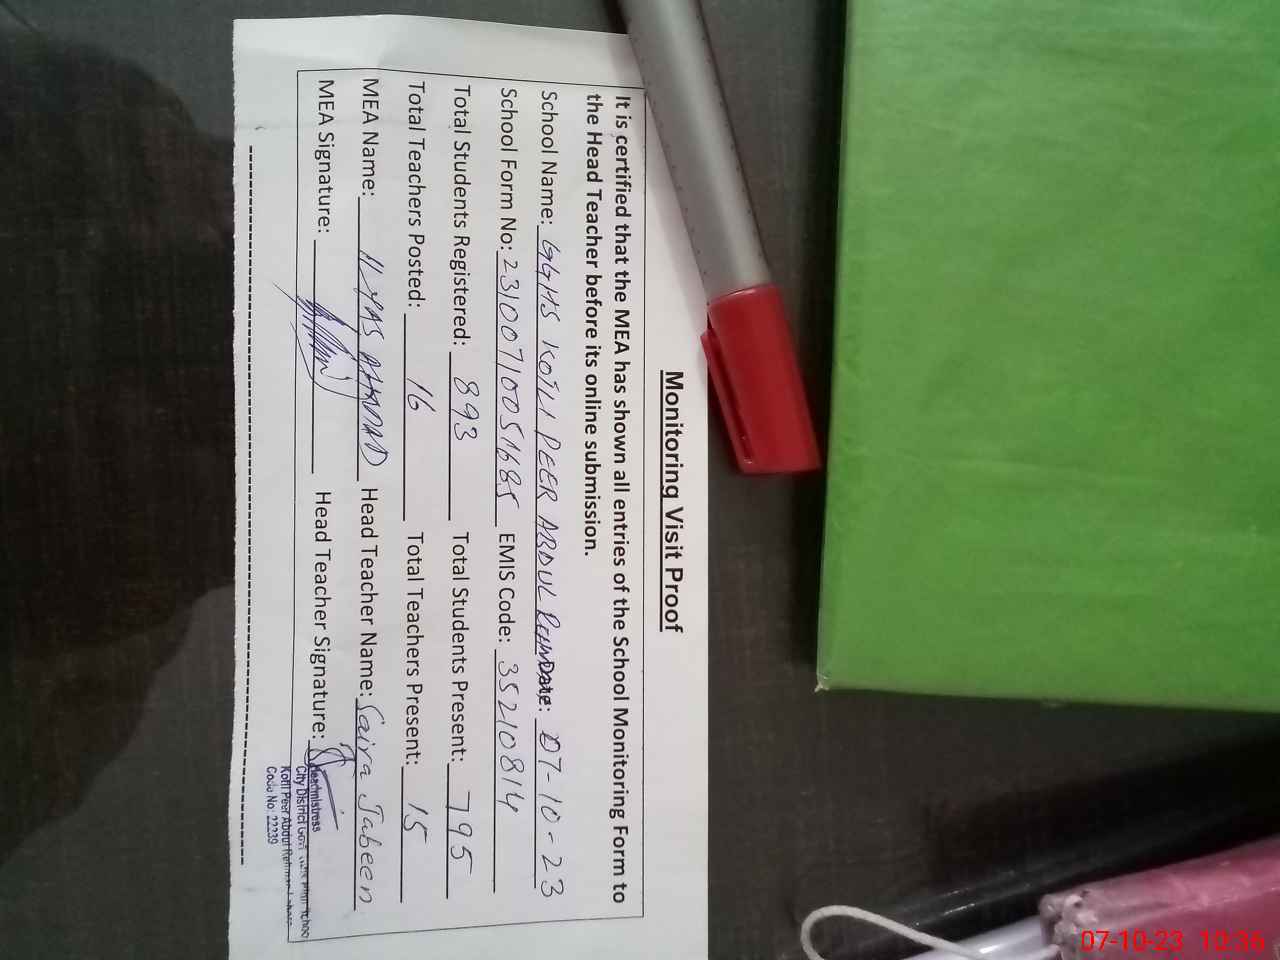 Monitoring Visit Proof
It is certified that the MEA has shown all entries of the School Monitoring Form to
the Head Teacher before its online submission.
School Name: GGHS KOTLI PEER ABDUL Date: 07-10-23
School Form No: 23100710051685 EMIS Code: 35210814
Total Students Registered: 893 Total Students Present: 795
Total Teachers Posted: 16 Total Teachers Present: 15
MEA Name: ILYAS AHMAD Head Teacher Name: Saira Jabeen
MEA Signature: Head Teacher Signature:
Headmistress
City District Govt
Kotli Peer Abdul Rehman Lahore
Code No: 22239
07-10-23 10:36